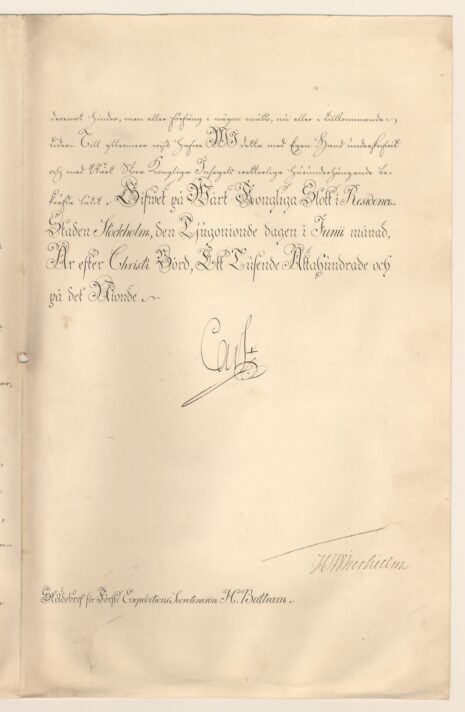 deremot hinder, men eller förfång i någon måtto, nu eller i tillkommande
tider. Till yttermera wisso hafve Wi detta med Egen Hand underskrifvit
och med Wårt Stora Kongliga Insegels wetterliga härunderhängande be-
kräfta låtit. Gifwet på Wårt Kongliga Slott i Residence-
Staden Stockholm, den Tjugonionde dagen i Junii månad,
År efter Christi Börd, Ett Tusende Åttahundrade och
på det Nionde.
Carl
Sköldebref för Förste Expeditions Secreteraren H.